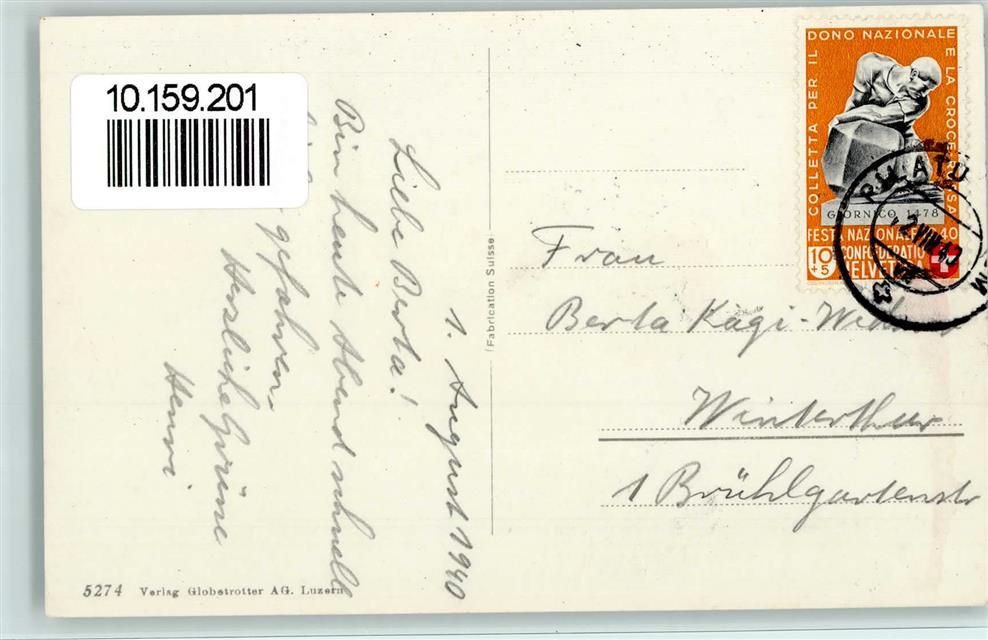 10.159.201
1. August 1940
Liebe Berta!
Bin heute Abend schnell
gefahren.
Herzliche Grüsse
Henri
Fabrication Suisse
COLLETTA PER IL DONO NAZIONALE E LA CROCE
GIORNICO 1478
FESTA NAZIONALE 40
10+5 CONFOEDERATIO
HELVETI
PILATU
Frau
Berta Kägi-
Winterthur
1 Brühlgartenstr
5274 Verlag Globetrotter AG. Luzern